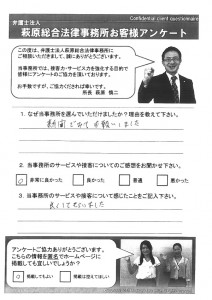 Confidential client questionnaire
弁護士法人
萩原総合法律事務所お客様アンケート
この度は、弁護士法人萩原総合法律事務所に
ご相談いただきまして、誠にありがとうございます。
当事務所では、接客力・サービス力を強化する目的で
皆様にアンケートのご協力を頂いております。
お手数ですが、ご協力くだされば幸いです。
所長 萩原 慎二
1. なぜ当事務所を選んでいただけましたか?理由を教えて下さい。
新聞でみて お願いしました
2. 当事務所のサービスや接客についてのご感想をお聞かせ下さい。
非常に良かった
良かった
普通
悪かった
3. 当事務所のサービスや接客について感じたことをご記入下さい。
良くして下さいました
アンケートご協力ありがとうございます。
こちらの情報を匿名でホームページに
掲載しても宜しいでしょうか?
掲載してもよい
掲載は控えてほしい